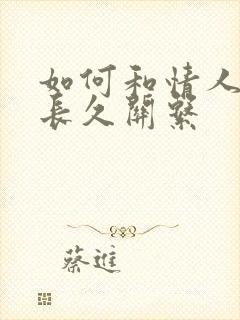 如何和情人
長久關繫
蔡進